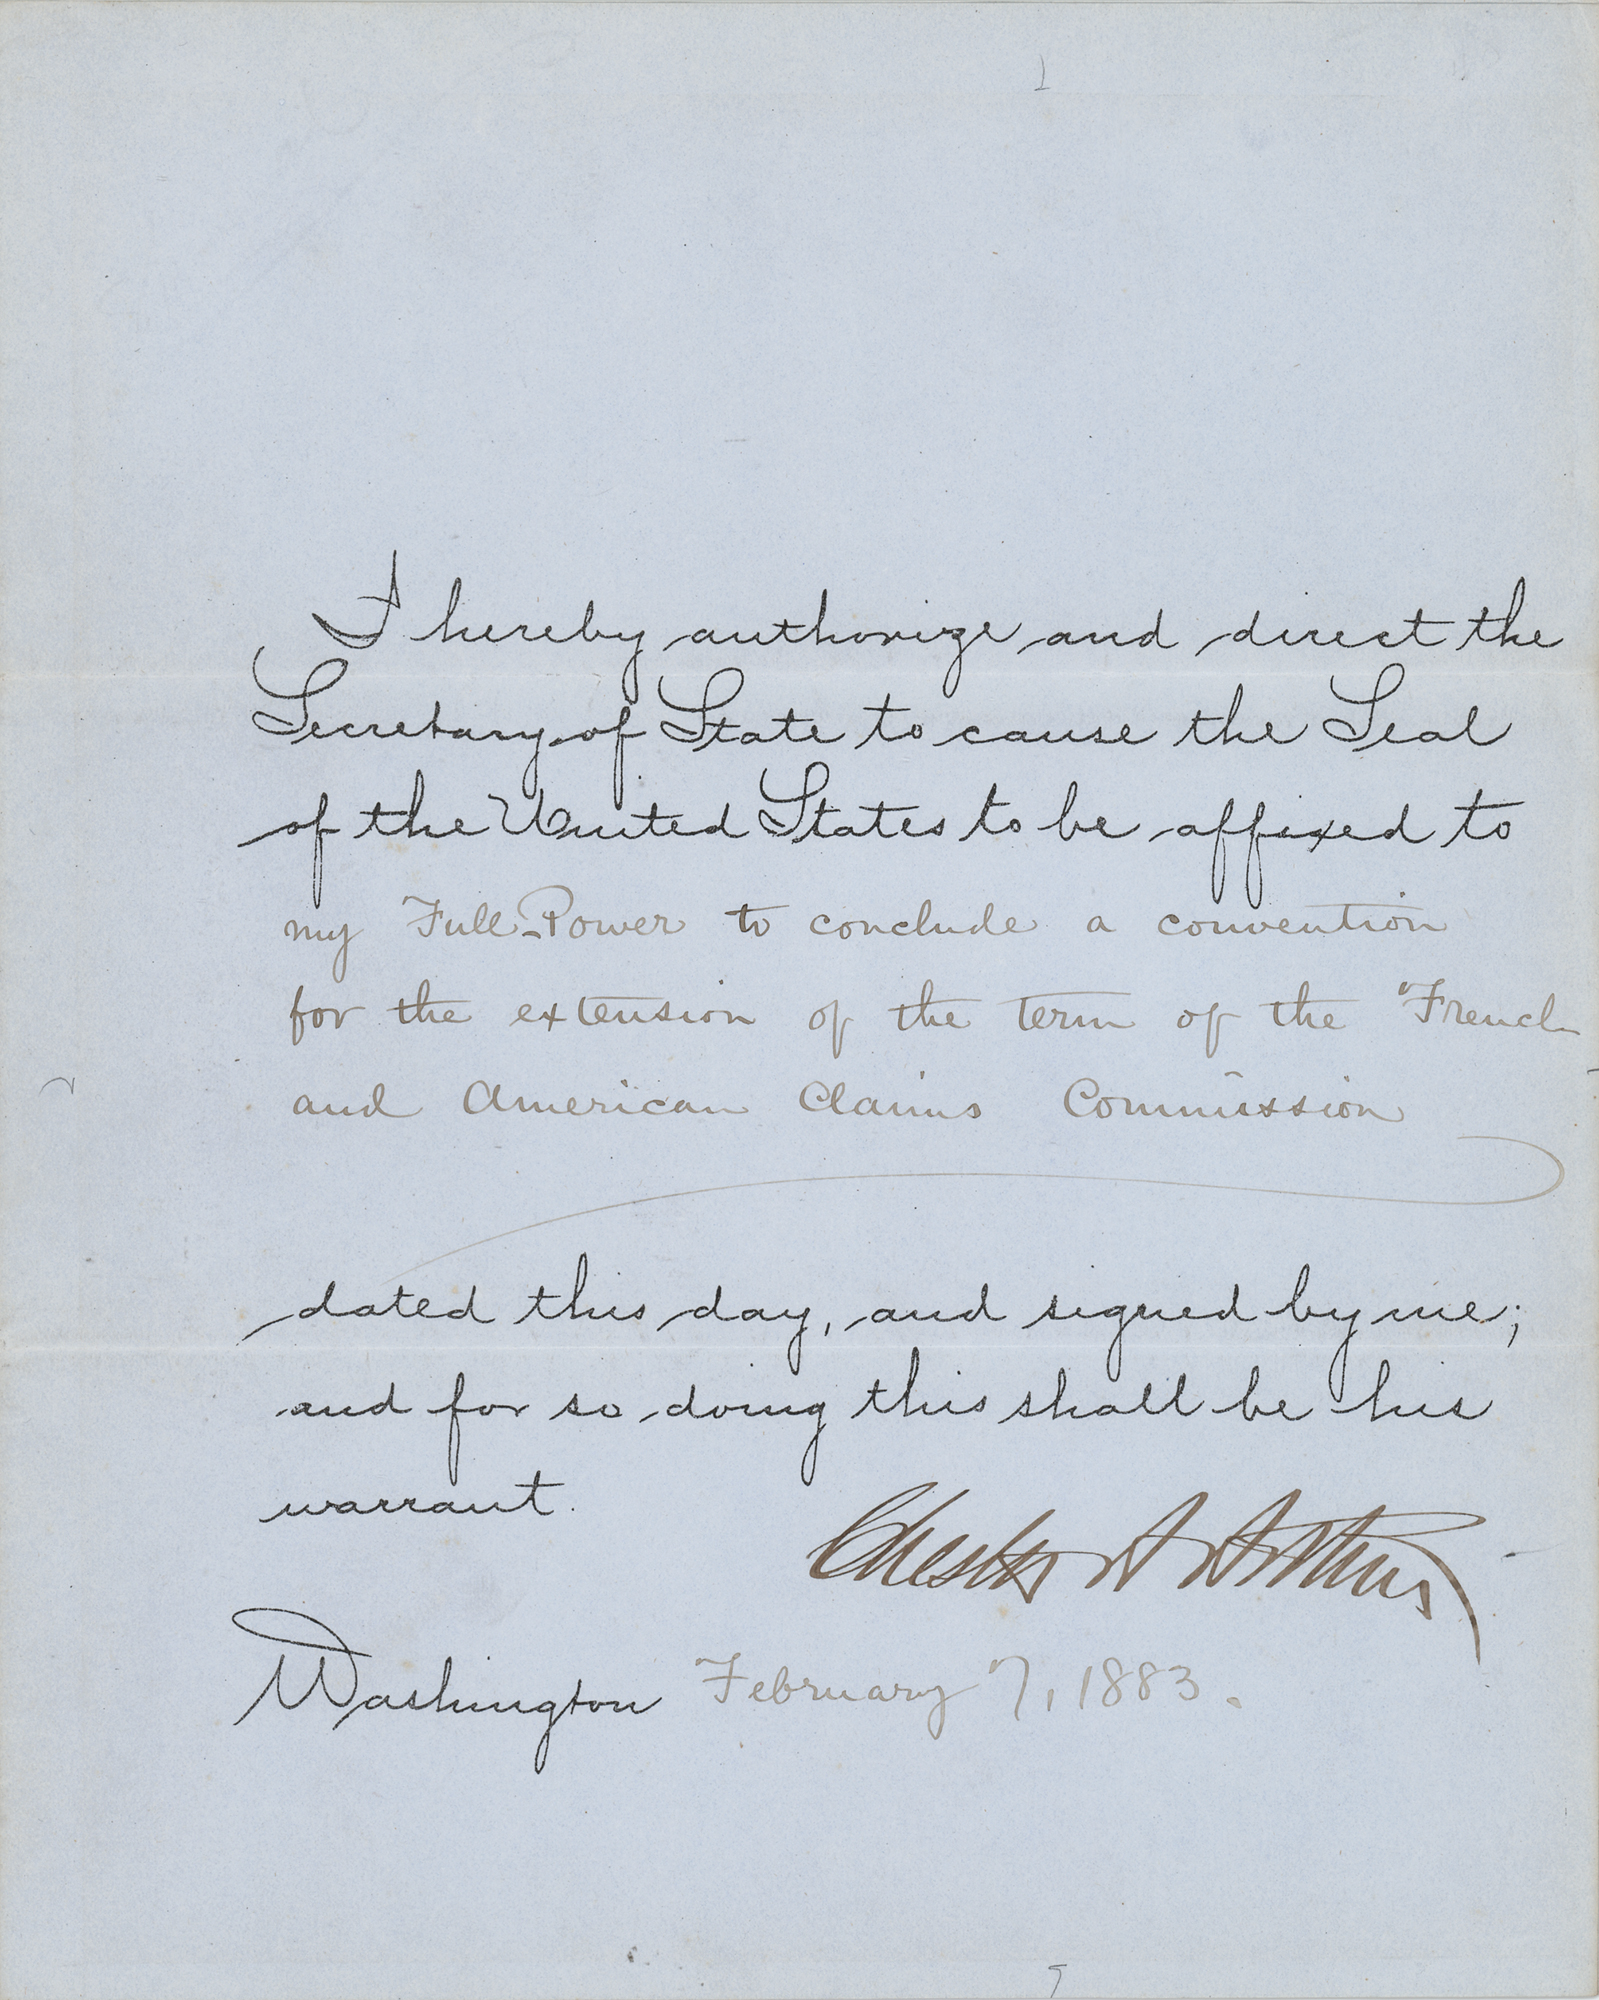 I hereby authorize and direct the
Secretary of State to cause the Seal
of the United States to be affixed to
my Full-Power to conclude a convention
for the extension of the term of the French
and American Claims Commission
dated this day, and signed by me;
and for so doing this shall be his
warrant.
Chester A. Arthur
Washington February 7, 1883.